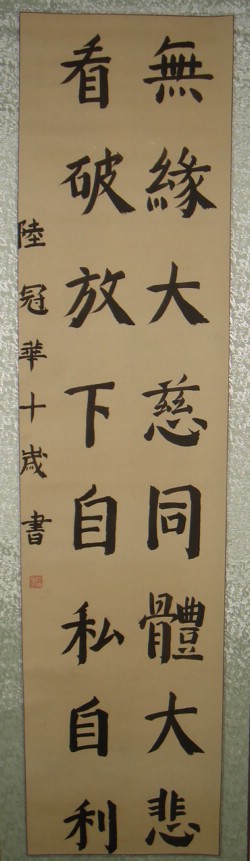 無緣大慈同體大悲
看破放下自私自利
陸冠華十歲書